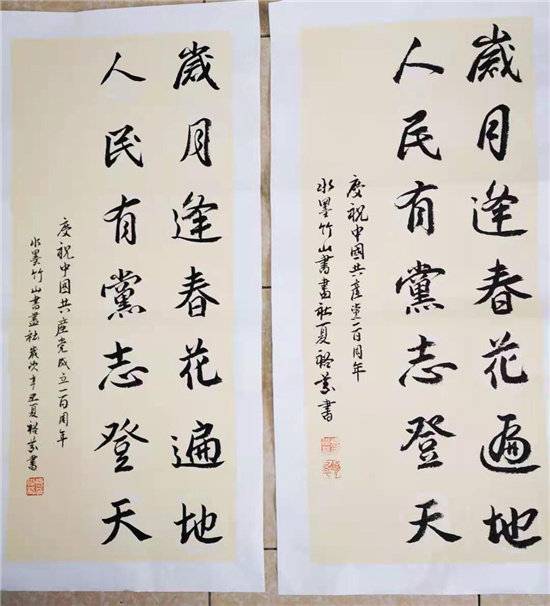 歲月逢春花遍地
人民有黨志登天
慶祝中國共產党成立一百周年
水墨竹山書畫社歲次辛丑夏書
歲月逢春花遍地
人民有黨志登天
慶祝中國共產党一百周年
水墨竹山書畫社夏書